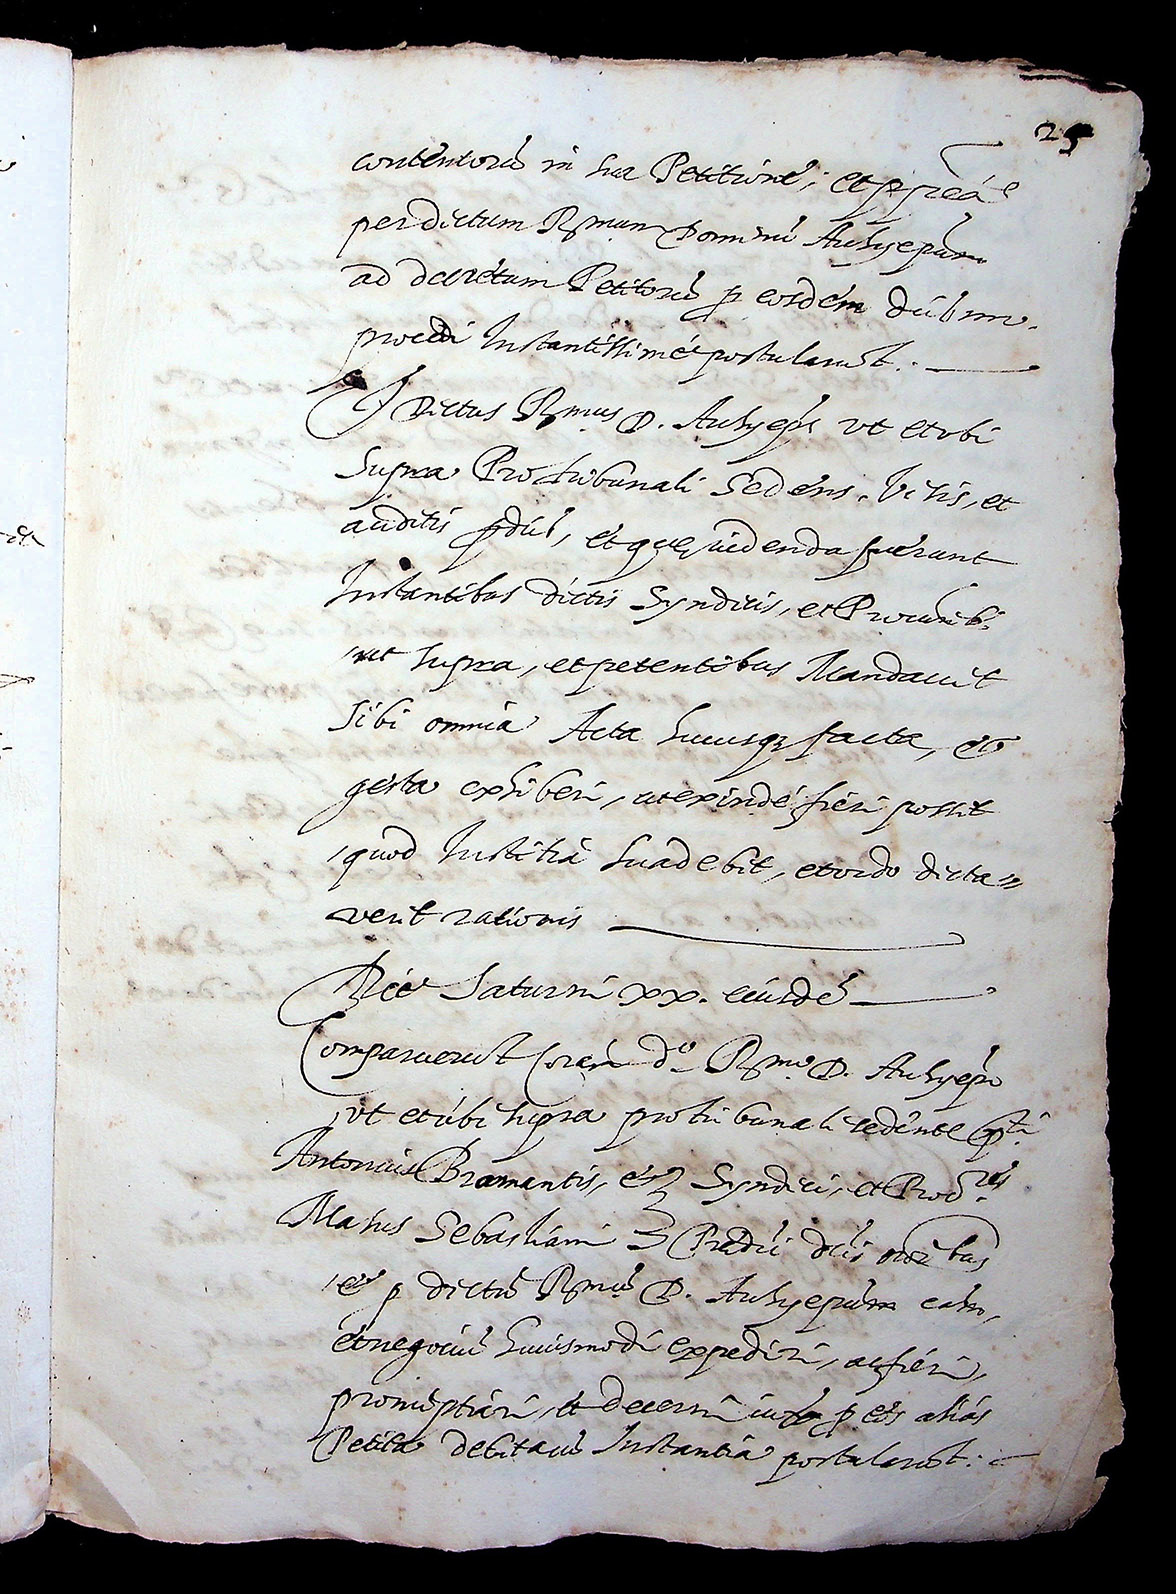 25
contentorũ in sua Petitione, et p preã
per dictum Rmum Dominũ Archyepũm
ad decretum Petitorũ p eosdem dũi
procedi Instantissime postularũt.
Dictus Rmus D. Archyepũs ut et ubi
supra Pro tribunali Sedens. Visis, et
auditis pdũs, et que videnda fuerunt
Instantibus dictis Syndicis, et Procurib.
ut supra, et petentibus Mandavit
sibi omnia Acta hucusq facta, et
gesta exhiberi, ut exinde fieri possit
quod Iustitia suadebit, et ordo dicta=
verit rationis
Die Saturni xx. eiusdẽ
Comparuerũt Coram do Rmo D. Archyepo
ut et ubi supra pro tribunali sedente
Antonius Bramantis, et Syndici, et Procres
Marius Sebastiani Predũi dũis noĩbus
et p dictũ Rmũ D. Archyepũm cam,
et negociũ huiusmodi expediri, ac fieri,
pronuptiari, et decerni iuxa p eos alias
Petita debita cũ Instantia postularũt.